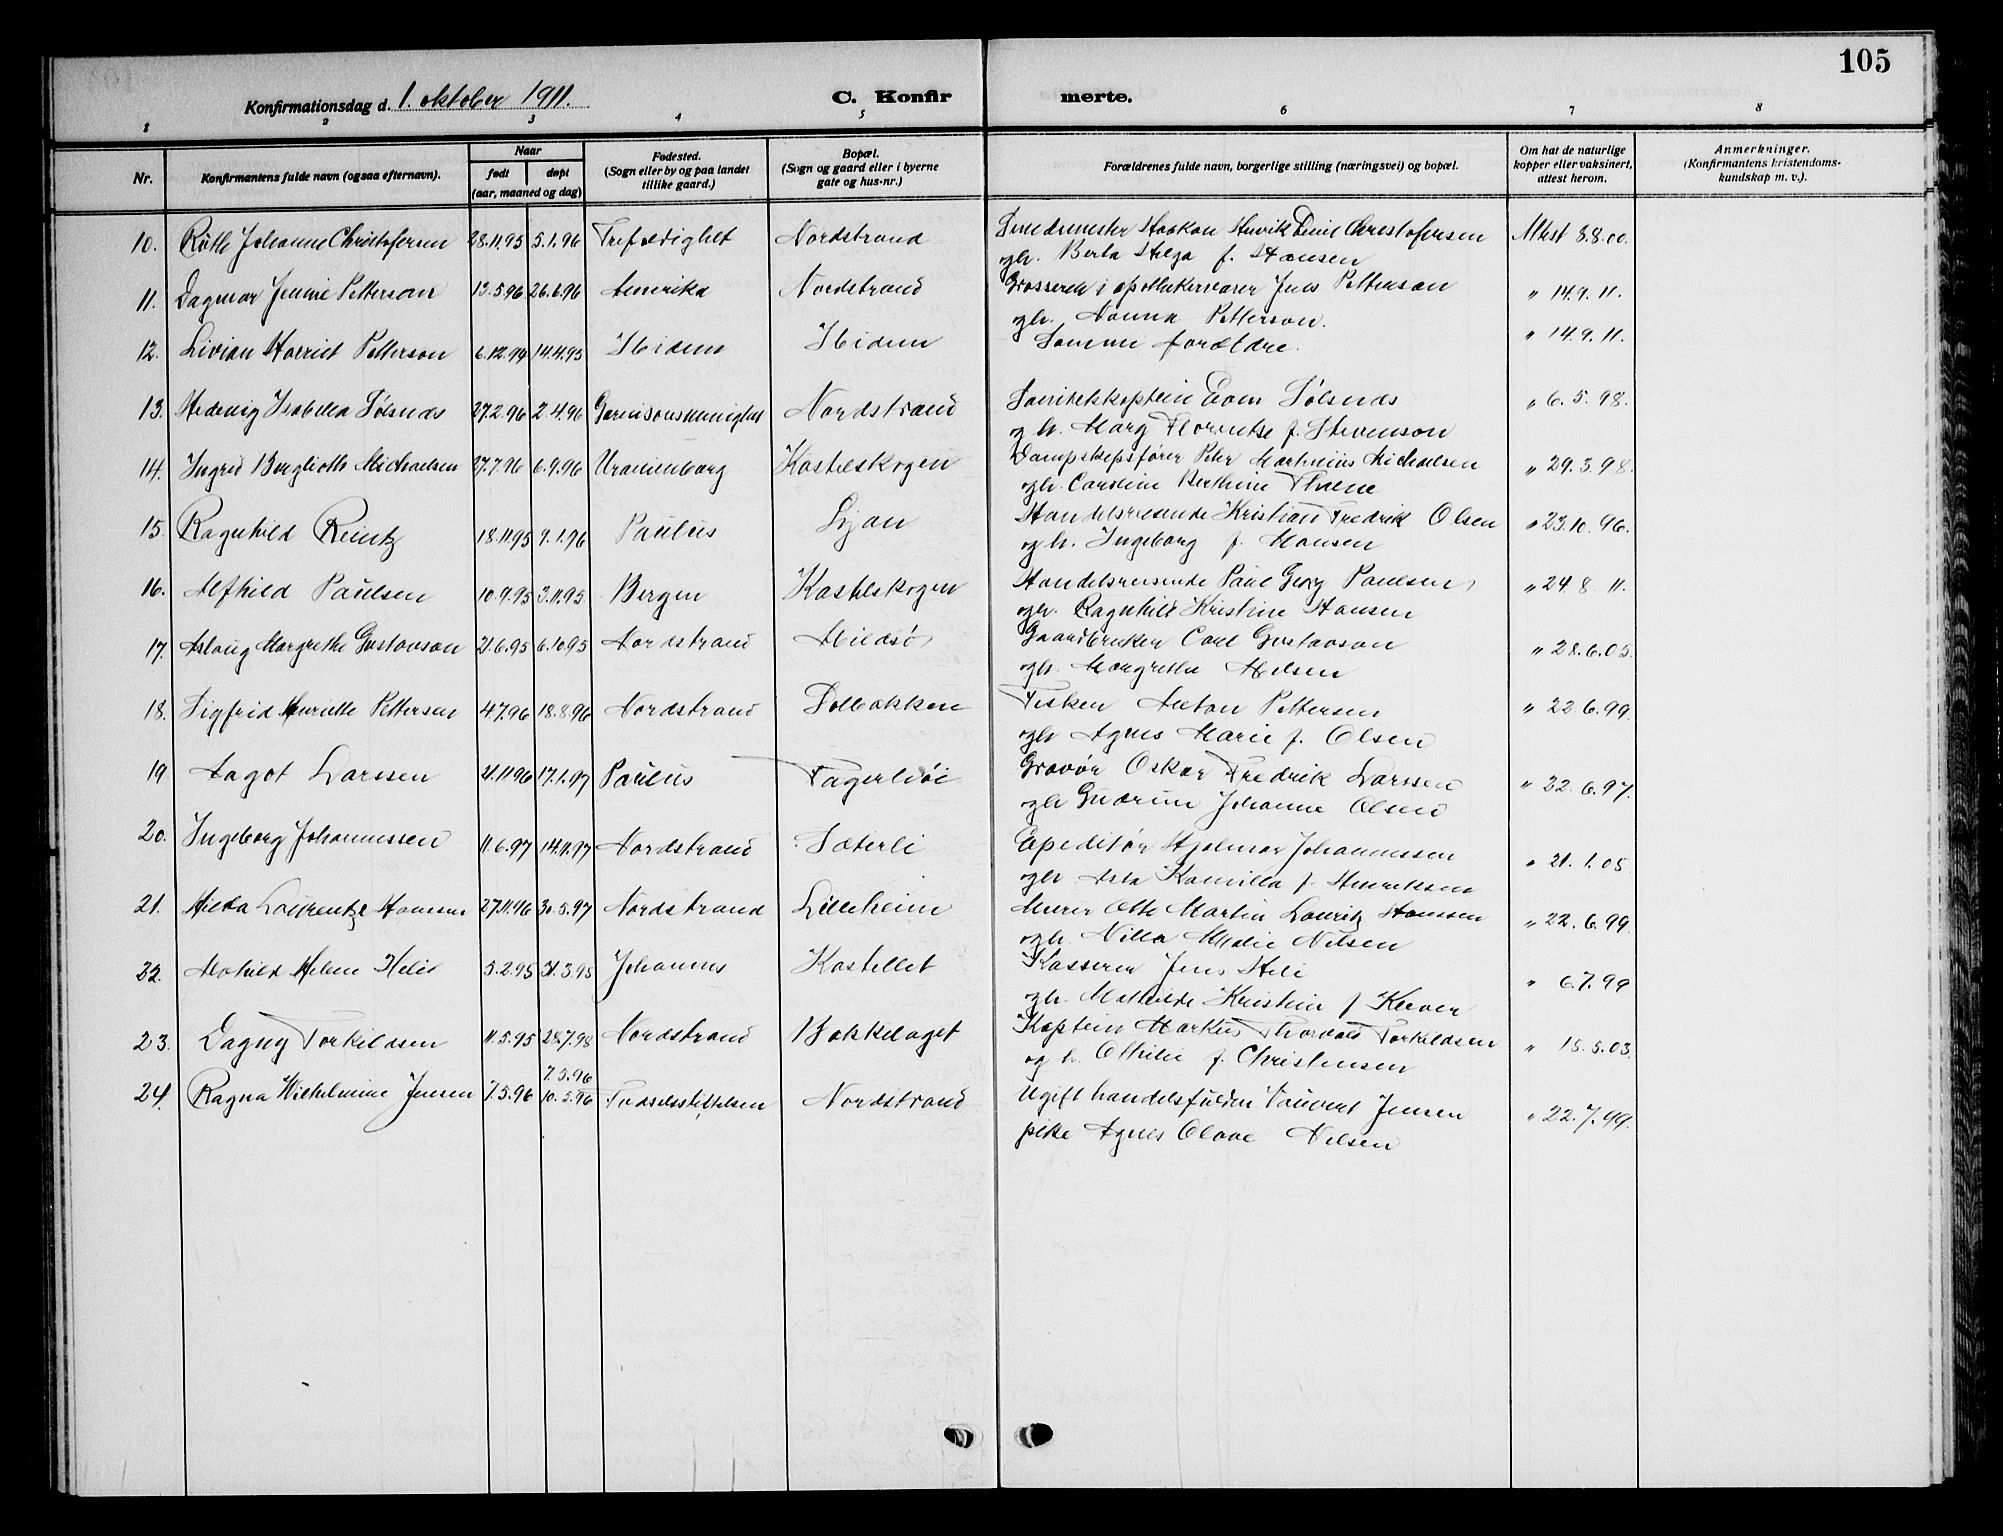 105
Konfirmationsdag d. 1. oktober 1911. C. Konfir merte.
1 2 3 4 5 6 7 8
Nr. Konfirmantens fulde navn (ogsaa efternavn). Naar født døpt (aar, maaned og dag) Fødested. (Sogn eller by og paa landet tillike gaard.) Bopæl. (Sogn og gaard eller i byerne gate og hus-nr.) Forældrenes fulde navn, borgerlige stilling (næringsvei) og bopæl. Om hat de naturlige kopper eller vaksinert, attest herom. Anmerkninger. (Konfirmantens kristendoms-kundskap m. v.).
10. Ruth Johanne Christofersen 28.11.95 5.1.96 Trefoldighet Nordstrand Haakon Henrik Emil Christofersen Attest 8.8.00.
og h. Berta Helga f. Hansen
11. Dagmar Jennie Petterson 13.5.96 26.6.96 Amerika Nordstrand Grosserer i apothekervarer Jens Petterson " 14.9.11.
og h. Nanna Petterson.
12. Livian Harriet Petterson 6.12.94 14.4.95 Ibidem Ibidem Samme forældre. " 14.9.11.
13. Hedevig Isabella Sølsnæs 27.2.96 2.4.96 Garnisonsmenighet Nordstrand Sanitetskaptein Even Sølsnæs " 6.5.98.
og h. Mary Florentse f. Stevenson
14. Ingrid Berglioth Michaelsen 27.7.96 6.9.96 Uranienborg Kastelskogen Dampskipsfører Peter Martinius Michaelsen " 29.3.98.
og h. Caroline Berthine Thrane
15. Ragnhild Reintz 18.11.95 9.1.96 Paulus Ljan Handelsreisende Kristian Fredrik Olsen " 23.10.96.
og h. Ingeborg f. Hansen
16. Alfhild Paulsen 10.9.95 3.11.95 Bergen Kastelskogen Handelsreisende Paul Georg Paulsen, " 24.8.11.
og h. Ragnhild Kristine Hansen
17. Aslaug Margrethe Gustavson 21.6.95 6.10.95 Nordstrand Gaardbruker Carl Gustavson " 28.6.05.
og h. Margrethe Nilsen
18. Sigfrid Henriette Pettersen 4.7.96 18.8.96 Nordstrand Solbakken Fisker Anton Pettersen " 22.6.99.
og h. Agnes Marie f. Olsen
19. Aagot Larssen 21.11.96 17.1.97 Paulus Fagerliøi Gravør Oskar Fredrik Larssen " 22.6.97.
og h. Gudrun Johanne Olsen
20. Ingeborg Johannessen 11.6.97 14.11.97 Nordstrand Sæterli Expeditør Hjalmar Johannessen " 21.1.05.
og h. Asta Kamilla f. Henriksen
21. Hilda Laurentze Hansen 27.11.96 30.5.97 Nordstrand Lilleheim Murer Otto Martin Lauritz Hanssen " 22.6.99.
og h. Nilla Malie Nilsen
22. Mathild Helene Heli 3.2.95 31.3.95 Johannes Kastellet Kasserer Jens Heli " 6.7.99
og h. Mathilde Kristine f.
23. Dagny Torkildsen 11.5.95 28.7.98 Nordstrand Bækkelaget Kaptein Markus Thorvald Torkildsen " 15.5.03.
og h. Othilie f. Christensen
7.5.96
24. Ragna Wilhelmine Jensen 7.5.96 10.5.96 Fødselsstiftelsen Nordstrand Ugift handelsfuldm. Jensen " 22.7.99.
pike Agnes Olava Nilsen